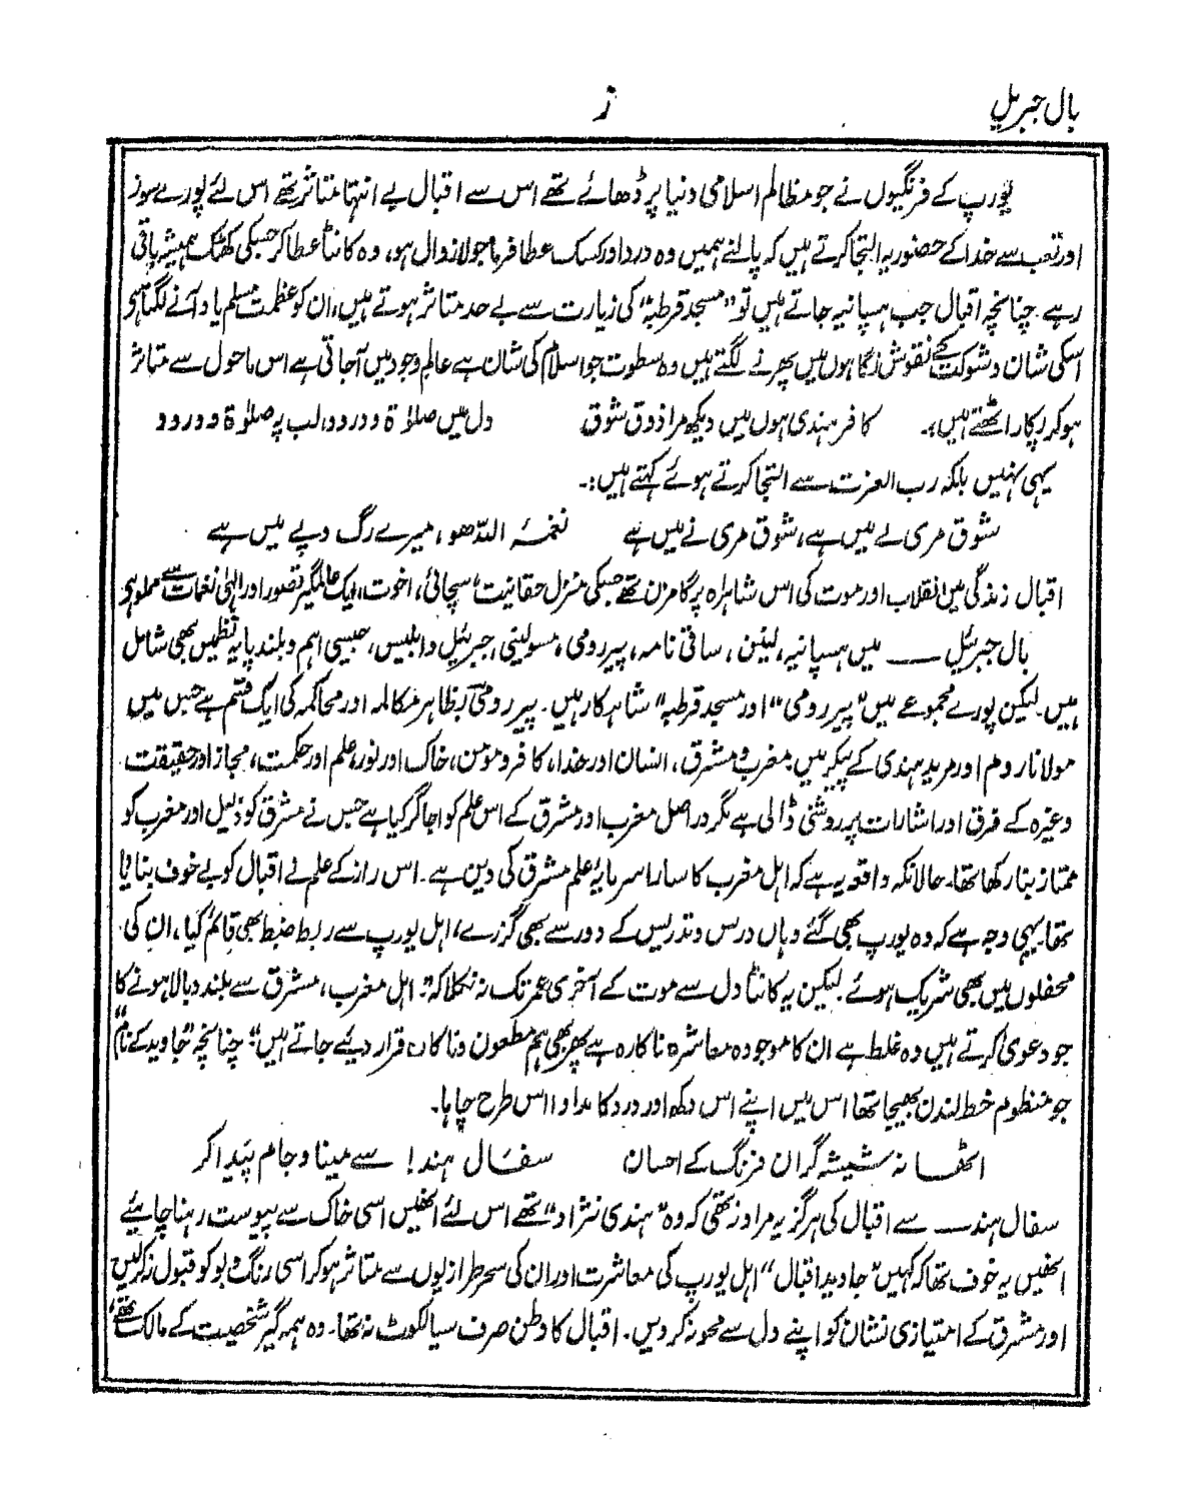 بال جبریل
ز
یورپ کے فرنگیوں نے جو مظالم اسلامی دنیا پر ڈھائے تھے اس سے اقبال بے انتہا متاثر تھے اس لئے پورے سوز
اور تعب سے خدا کے حضور یہ التجا کرتے ہیں کہ پالنے ہمیں وہ درد اور کسک عطا فرما جو لازوال ہو، وہ کانٹا عطا کر جسکی کھٹک ہمیشہ باقی
رہے۔ چنانچہ اقبال جب ہسپانیہ جاتے ہیں تو "مسجد قرطبہ" کی زیارت سے بے حد متاثر ہوتے ہیں، ان کو عظمت مسلم یاد آنے لگتا ہے
اسکی شان و شوکت کے نقوش نگاہوں میں پھرنے لگتے ہیں وہ سطوت جو اسلام کی شان ہے عالم وجود میں آجاتی ہے اس ماحول سے متاثر
ہو کر پکار اٹھتے ہیں:۔ کافر ہندی ہوں میں دیکھ مرا ذوق شوق دل میں صلوٰۃ و درود، لب پر صلوٰۃ و درود
یہی نہیں بلکہ رب العزت سے التجا کرتے ہوئے کہتے ہیں:۔
شوق مری لے میں ہے، شوق مری نے میں ہے نغمۂ اللہ ھو، میرے رگ و پے میں ہے
اقبال زندگی میں انقلاب اور موت کی اس شاہراہ پر گامزن تھے جسکی منزل حقانیت، سچائی، اخوت، ایک عالمگیر تصور اور الہٰی نغمات سے مملو ہو
بال جبرئیل ــــ میں ہسپانیہ، لینن، ساقی نامہ، پیر رومی، مسولینی، جبرئیل و ابلیس، جیسی اہم و بلند پایہ نظمیں بھی شامل
ہیں۔ لیکن پورے مجموعے میں "پیر رومی" اور مسجد قرطبہ" شاہکار ہیں۔ پیر رومی بظاہر مکالمہ اور محاکمہ کی ایک قسم ہے جس میں
مولانا روم اور مرید ہندی کے پیکر میں مغرب و مشرق، انسان اور خدا، کافر و مومن، خاک اور نور، علم اور حکمت، مجاز اور حقیقت
وغیرہ کے فرق اور اشارات پر روشنی ڈالی ہے مگر دراصل مغرب اور مشرق کے اس علم کو اجاگر کیا ہے جس نے مشرق کو ذلیل اور مغرب کو
ممتاز بنا رکھا تھا۔ حالانکہ واقعہ یہ ہے کہ اہل مغرب کا سارا سرمایۂ علم مشرق کی دین ہے۔ اس راز کے علم نے اقبال کو بے خوف بنا دیا
تھا۔ یہی وجہ ہے کہ وہ یورپ بھی گئے وہاں درس و تدریس کے دور سے بھی گزرے، اہل یورپ سے ربط ضبط بھی قائم کیا، ان کی
محفلوں میں بھی شریک ہوئے۔ لیکن یہ کانٹا دل سے موت کے آخری عمر تک نہ نکلا کہ "اہل مغرب، مشرق سے بلند و بالا ہونے کا
جو دعویٰ کرتے ہیں وہ غلط ہے ان کا موجودہ معاشرہ ناکارہ ہے پھر بھی ہم مطعون و ناکارہ قرار دیئے جاتے ہیں" چنانچہ "جاوید کے نام"
جو منظوم خط لندن بھیجا تھا اس میں اپنے اس دکھ اور درد کا مداوا اس طرح چاہا۔
اٹھا نہ شیشہ گران فرنگ کے احسان سفال ہند! سے مینا و جام پیدا کر
سفال ہند ــــ سے اقبال کی ہرگز یہ مراد نہ تھی کہ وہ "ہندی نژاد" تھے اس لئے انھیں اسی خاک سے پیوست رہنا چاہیئے
انھیں یہ خوف تھا کہ کہیں "جاوید اقبال" اہل یورپ کی معاشرت اور ان کی سحر طرازیوں سے متاثر ہو کر اسی رنگ و بو کو قبول نہ کرلیں
اور مشرق کے امتیازی نشان کو اپنے دل سے محو نہ کردیں۔ اقبال کا وطن صرف سیالکوٹ نہ تھا۔ وہ ہمہ گیر شخصیت کے مالک تھے،